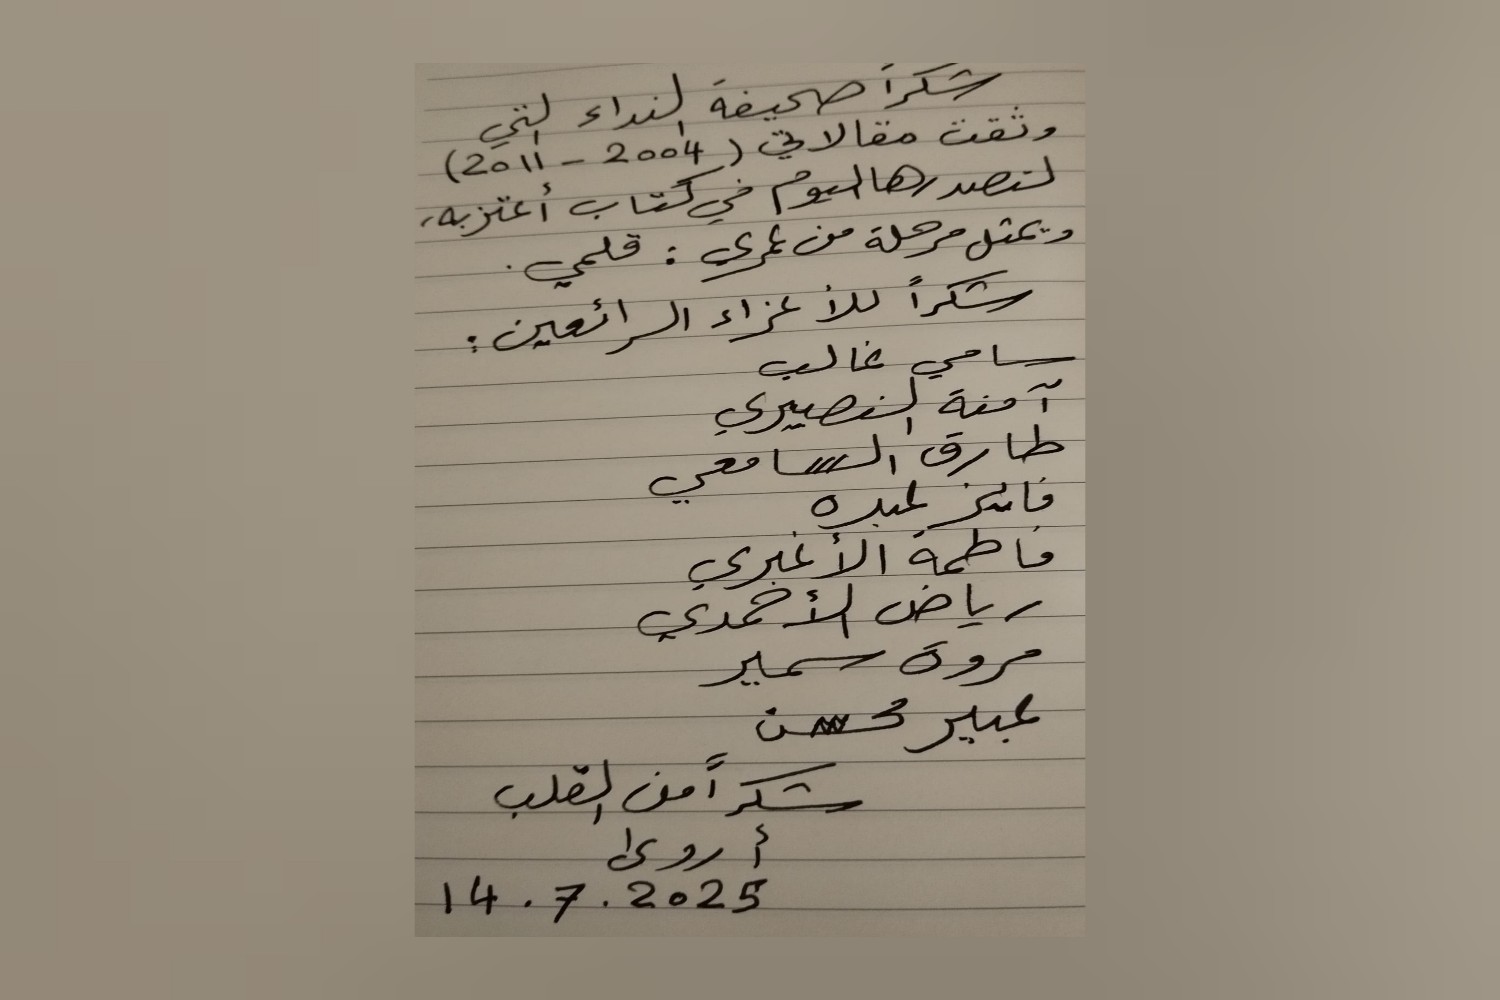 شكراً صحيفة النداء التي
وثقت مقالاتي (2004 - 2011)
لتصدرها اليوم في كتاب أعتز به،
ويمثل مرحلة من عمري : قلمي.
شكراً للأعزاء الرائعين :
سامي غالب
آمنة النصيري
طارق السامعي
فايز عبده
فاطمة الأغبري
رياض الأحمدي
مروة سمير
عبير محسن
شكراً من القلب
أروى
14.7.2025